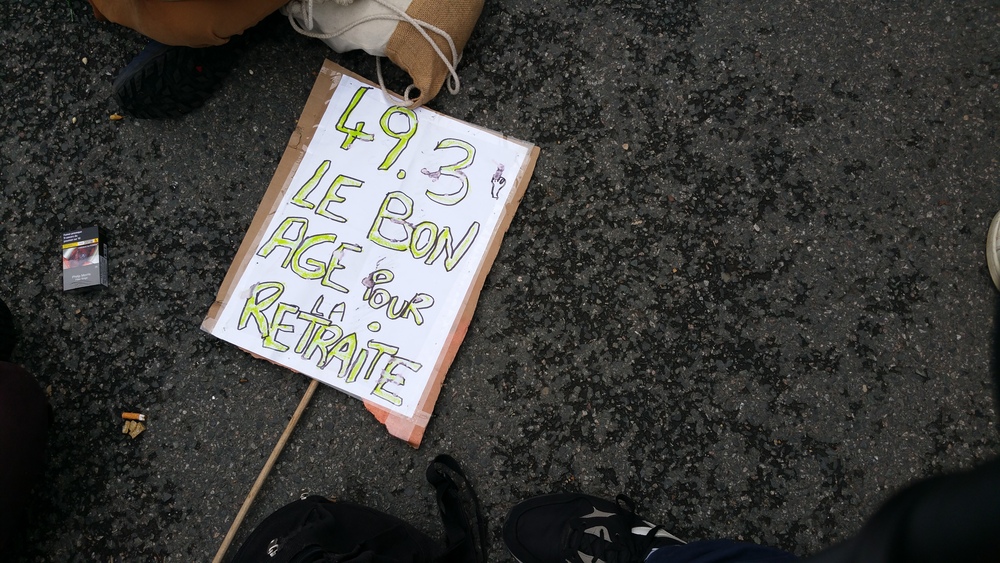 49.3
LE BON
AGE POUR
LA
RETRAITE